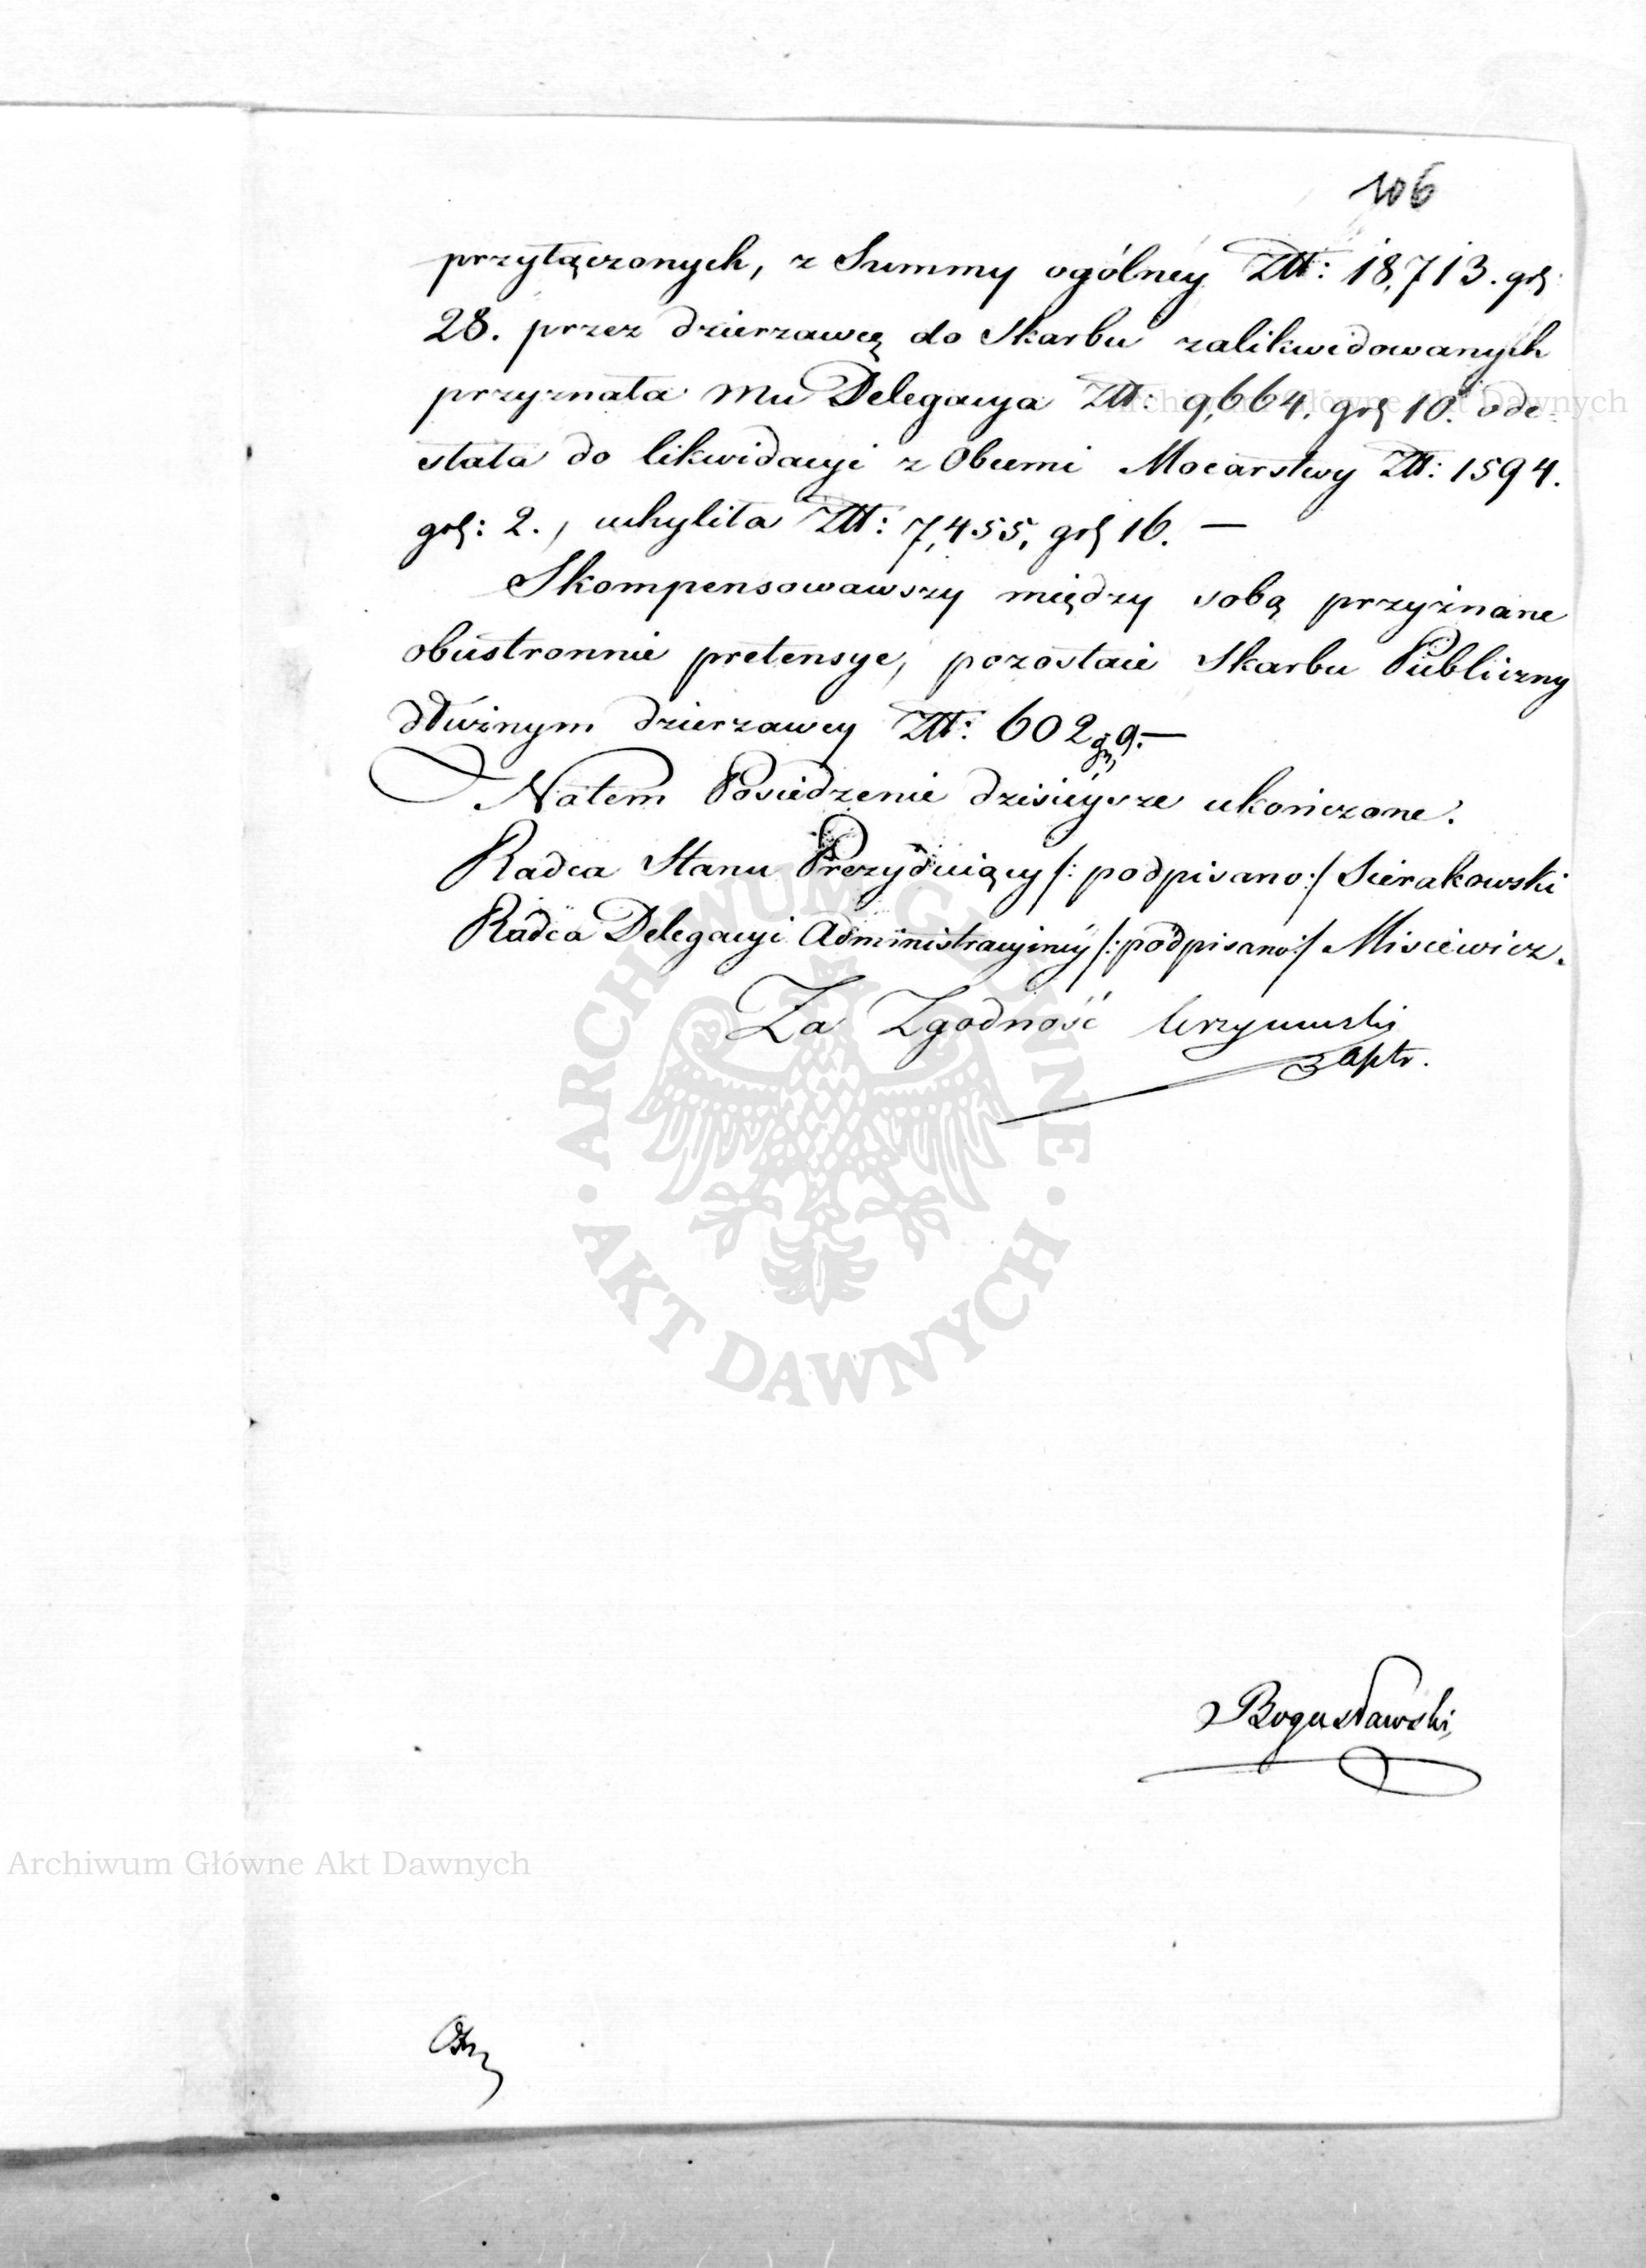 106
przyłączonych, z Summy ogólney Złł: 18,713. grʃ:
28. przez dzierzawcę do Skarbu zalikwidowanych
przyznała mu Delegacya Złł: 9,664. grʃ 10. ode-
Archiwum Główne Akt Dawnych
słała do likwidacyi z Obcemi Mocarstwy Złł: 1594.
grʃ: 2., uchyliła Złł: 7,455, grʃ 16. —
Skompensowawszy między sobą przyznane
obustronnie pretensye, pozostaie Skarbu Publiczny
dłużnym dzierzawcy Złł: 602 gr 9. —
Natem Posiedzenie dzisieysze ukończone.
Radca Stanu Prezyduiący /: podpisano :/ Sierakowski
Radca Delegacyi Administracyiney /: podpisano :/ Misiewicz.
Za Zgodność
ARCHIWUM GŁÓWNE · AKT DAWNYCH ·
Bogusławski
Archiwum Główne Akt Dawnych